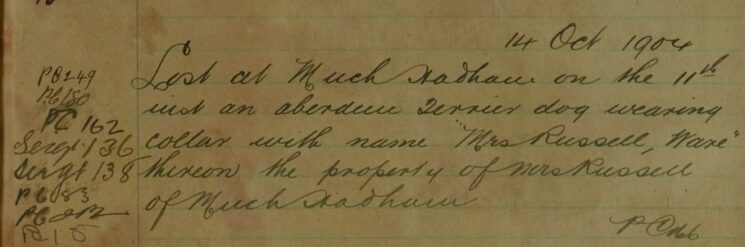 14 Oct 1904
PC 249 Lost at Much Hadham on the 11th
PC 180 inst an aberdeen Terrier dog wearing
PC 162 collar with name "Mrs Russell, Ware"
Sergt 136 thereon the property of Mrs Russell
Sergt 138 of Much Hadham
PC 83